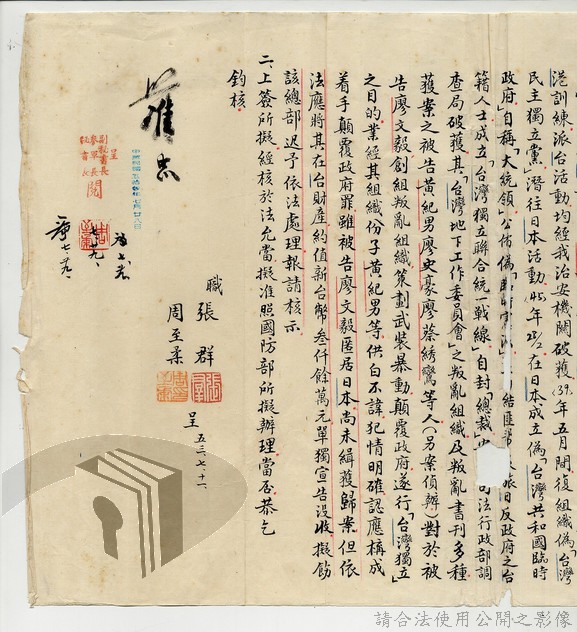 港訓練派員活動均經我治安機關破獲(39.年五月間復組織偽「台灣
民主獨立黨」潛往日本活動45.年2/2.在日本成立偽「台灣共和國臨時
政府」自稱「大統領」公佈偽 結匪 派日反政府之台
籍人士成立「台灣獨立聯合統一戰線」自封「總裁」 司法行政部調
查局破獲其「台灣地下工作委員會」之叛亂組織及叛亂書刊多種
獲案之被告黃紀男廖史豪廖蔡綉鸞等人(另案偵辦)對於被
告廖文毅創組叛亂組織策劃武裝暴動顛覆政府遂行「台灣獨立」
之目的業經其組織份子黃紀男等供白不諱犯情明確認應構成
着手顛覆政府罪雖被告廖文毅匿居日本尚未緝獲歸案但依
法應將其在台財產約值新台幣叁仟餘萬元單獨宣告沒收擬飭
該總部迅予依法處理報請核示
二、上簽所擬經核於法允當擬准照國防部所擬辦理當否恭乞
鈞核
職 張群
周至柔 呈 五三、七、十一
呈
副秘書長
參軍長
秘書長
閱
七、九、